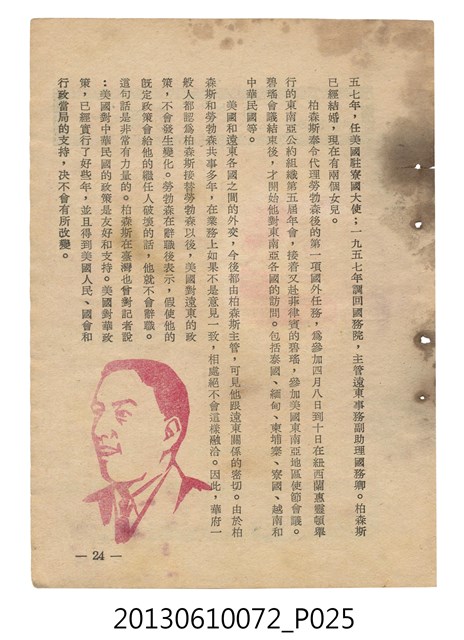 五七年，任美國駐寮國大使；一九五七年調回國務院，主管遠東事務副助理國務卿。柏森斯
已經結婚，現在有兩個女兒。
柏森斯奉令代理勞勃森後的第一項國外任務，爲參加四月八日到十日在紐西蘭惠靈頓舉
行的東南亞公約組織第五屆年會，接着又赴菲律賓的碧瑤，參加美國東南亞地區使節會議。
碧瑤會議結束後，才開始他對東南亞各國的訪問。包括泰國、緬甸、柬埔寨、寮國、越南和
中華民國等。
美國和遠東各國之間的外交，今後都由柏森斯主管，可見他跟遠東關係的密切。由於柏
森斯和勞勃森共事多年，在業務上如果不是意見一致，相處絕不會這樣融洽。因此，華府一
般人都認爲柏森斯接替勞勃森以後，美國對遠東的政
策，不會發生變化。勞勃森在辭職後表示，假使他的
旣定政策會給他的繼任人破壞的話，他就不會辭職。
這句話是非常有力量的。柏森斯在臺灣也曾對記者說
：美國對中華民國的政策是友好和支持。美國對華政
策，已經實行了好些年，並且得到美國人民、國會和
行政當局的支持，決不會有所改變。
— 24 —
20130610072_P025